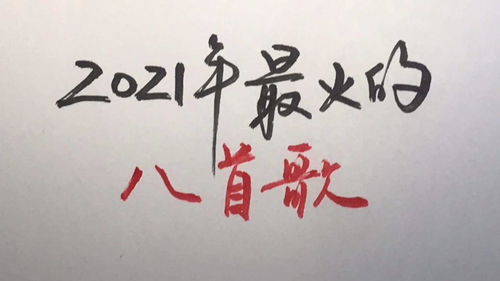 2021年最火的
八首歌